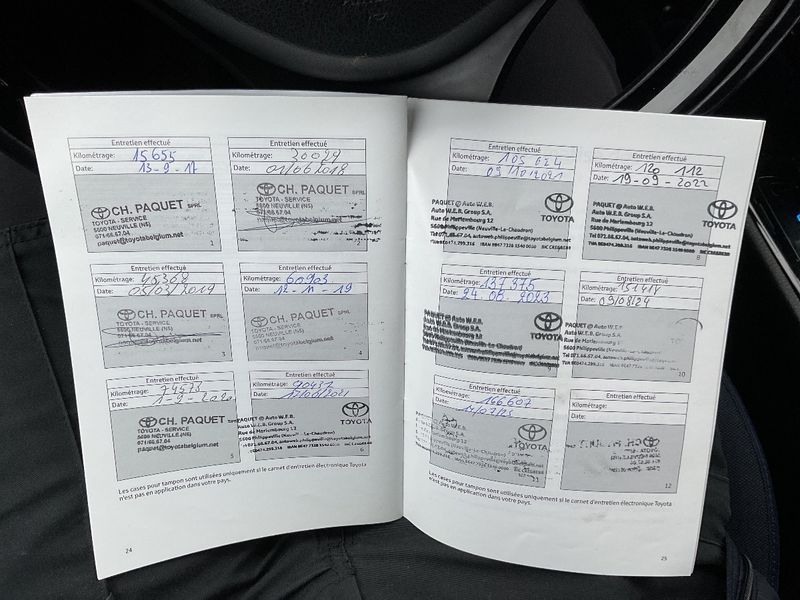 Entretien effectué
Kilométrage: 15655
Date: 13-9-17
CH. PAQUET SPRL
TOYOTA - SERVICE
5600 NEUVILLE (NS)
071.66.67.04
paquet@toyotabelgium.net
1
Entretien effectué
Kilométrage: 30029
Date: 01/06/2018
CH. PAQUET SPRL
TOYOTA - SERVICE
5600 NEUVILLE (NS)
071.66.67.04
paquet@toyotabelgium.net
2
Entretien effectué
Kilométrage: 45368
Date: 05/03/2019
CH. PAQUET SPRL
TOYOTA - SERVICE
5600 NEUVILLE (NS)
071.66.67.04
3
Entretien effectué
Kilométrage: 60903
Date: 12-11-19
CH. PAQUET SPRL
TOYOTA - SERVICE
5600 NEUVILLE (NS)
4
Entretien effectué
Kilométrage:
Date: 1-9-2020
CH. PAQUET
TOYOTA - SERVICE
5600 NEUVILLE (NS)
071.66.67.04
paquet@toyotabelgium.net
5
Entretien effectué
Kilométrage: 90437
Date:
PAQUET @ Auto W.E.B.
Auto W.E.B. Group S.A.
Rue de Mariembourg 12
5600 Philippeville (Neuville-Le-Chaudron)
TOYOTA
6
Les cases pour tampon sont utilisées uniquement si le carnet d'entretien électronique Toyota
n'est pas en application dans votre pays.
24
Entretien effectué
Kilométrage: 105 624
Date:
PAQUET @ Auto W.E.B.
Auto W.E.B. Group S.A.
Rue de Mariembourg 12
5600 Philippeville (Neuville-Le-Chaudron)
TOYOTA
Entretien effectué
Kilométrage: 120 112
Date: 19-09-2022
PAQUET @ Auto W.E.B.
Auto W.E.B. Group S.A.
Rue de Mariembourg 12
5600 Philippeville (Neuville-Le-Chaudron)
TOYOTA
8
Entretien effectué
Kilométrage: 137375
Date: 24.08.2023
PAQUET @ Auto W.E.B.
Auto W.E.B. Group S.A.
Rue de Mariembourg 12
5600 Philippeville (Neuville-Le-Chaudron)
TOYOTA
Entretien effectué
Kilométrage: 151414
Date: 09/08/24
PAQUET @ Auto W.E.B.
Auto W.E.B. Group S.A.
Rue de Mariembourg 12
5600 Philippeville (Neuville-Le-Chaudron)
10
Entretien effectué
Kilométrage: 166607
Date: 14/07/25
PAQUET @ Auto W.E.B.
Auto W.E.B. Group S.A.
Rue de Mariembourg 12
TOYOTA
Entretien effectué
Kilométrage:
Date:
12
Les cases pour tampon sont utilisées uniquement si le carnet d'entretien électronique Toyota
n'est pas en application dans votre pays.
25